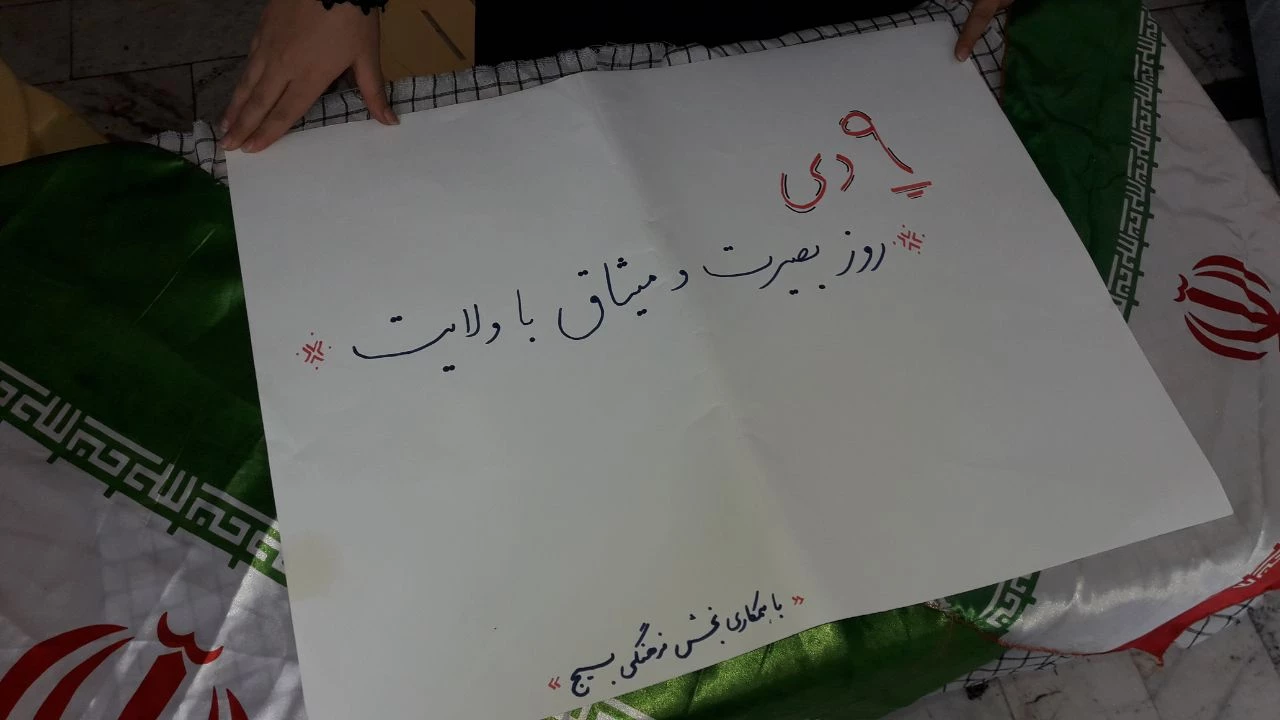 ۹ دی
※ روز بصیرت و میثاق با ولایت ※
« با همکاری بخش فرهنگی بسیج »